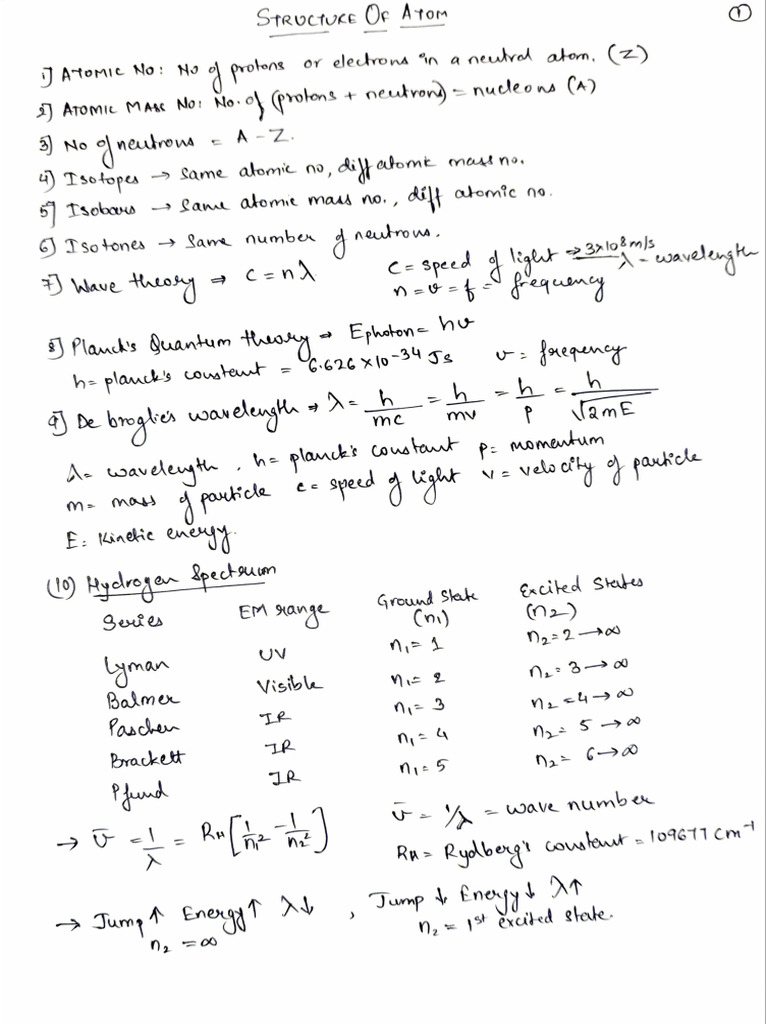 STRUCTURE OF ATOM
1
1] ATOMIC NO: No of protons or electrons in a neutral atom. (Z)
2] ATOMIC MASS NO: No. of (protons + neutrons) = nucleons (A)
3] No of neutrons = A - Z.
4] Isotopes → Same atomic no, diff atomic mass no.
5] Isobars → Same atomic mass no., diff atomic no.
6] Isotones → Same number of neutrons.
7] Wave theory ⇒ C = nλ   C = speed of light ⇒ 3×10^8 m/s   λ - wavelength
n = υ = f = frequency
8] Planck's Quantum theory ⇒ Ephoton = hυ
h = planck's constant = 6.626 × 10^-34 Js   υ = freqency
9] De broglie's wavelength ⇒ λ = h/mc = h/mv = h/p = h/√2mE
λ = wavelength, h = planck's constant   p = momentum
m = mass of particle   c = speed of light   v = velocity of particle
E = Kinetic energy.
(10) Hydrogen Spectrum
Series   EM range   Ground State (n1)   Excited States (n2)
Lyman   UV   n1 = 1   n2 = 2 → ∞
Balmer   Visible   n1 = 2   n2 = 3 → ∞
Paschen   IR   n1 = 3   n2 = 4 → ∞
Brackett   IR   n1 = 4   n2 = 5 → ∞
Pfund   IR   n1 = 5   n2 = 6 → ∞
→ ῡ = 1/λ = RH [1/n1² - 1/n2²]   ῡ = 1/λ = wave number
RH = Rydberg's constant = 109677 cm^-1
→ Jump ↑ Energy ↑ λ↓ , Jump ↓ Energy ↓ λ↑
n2 = ∞   n2 = 1st excited state.